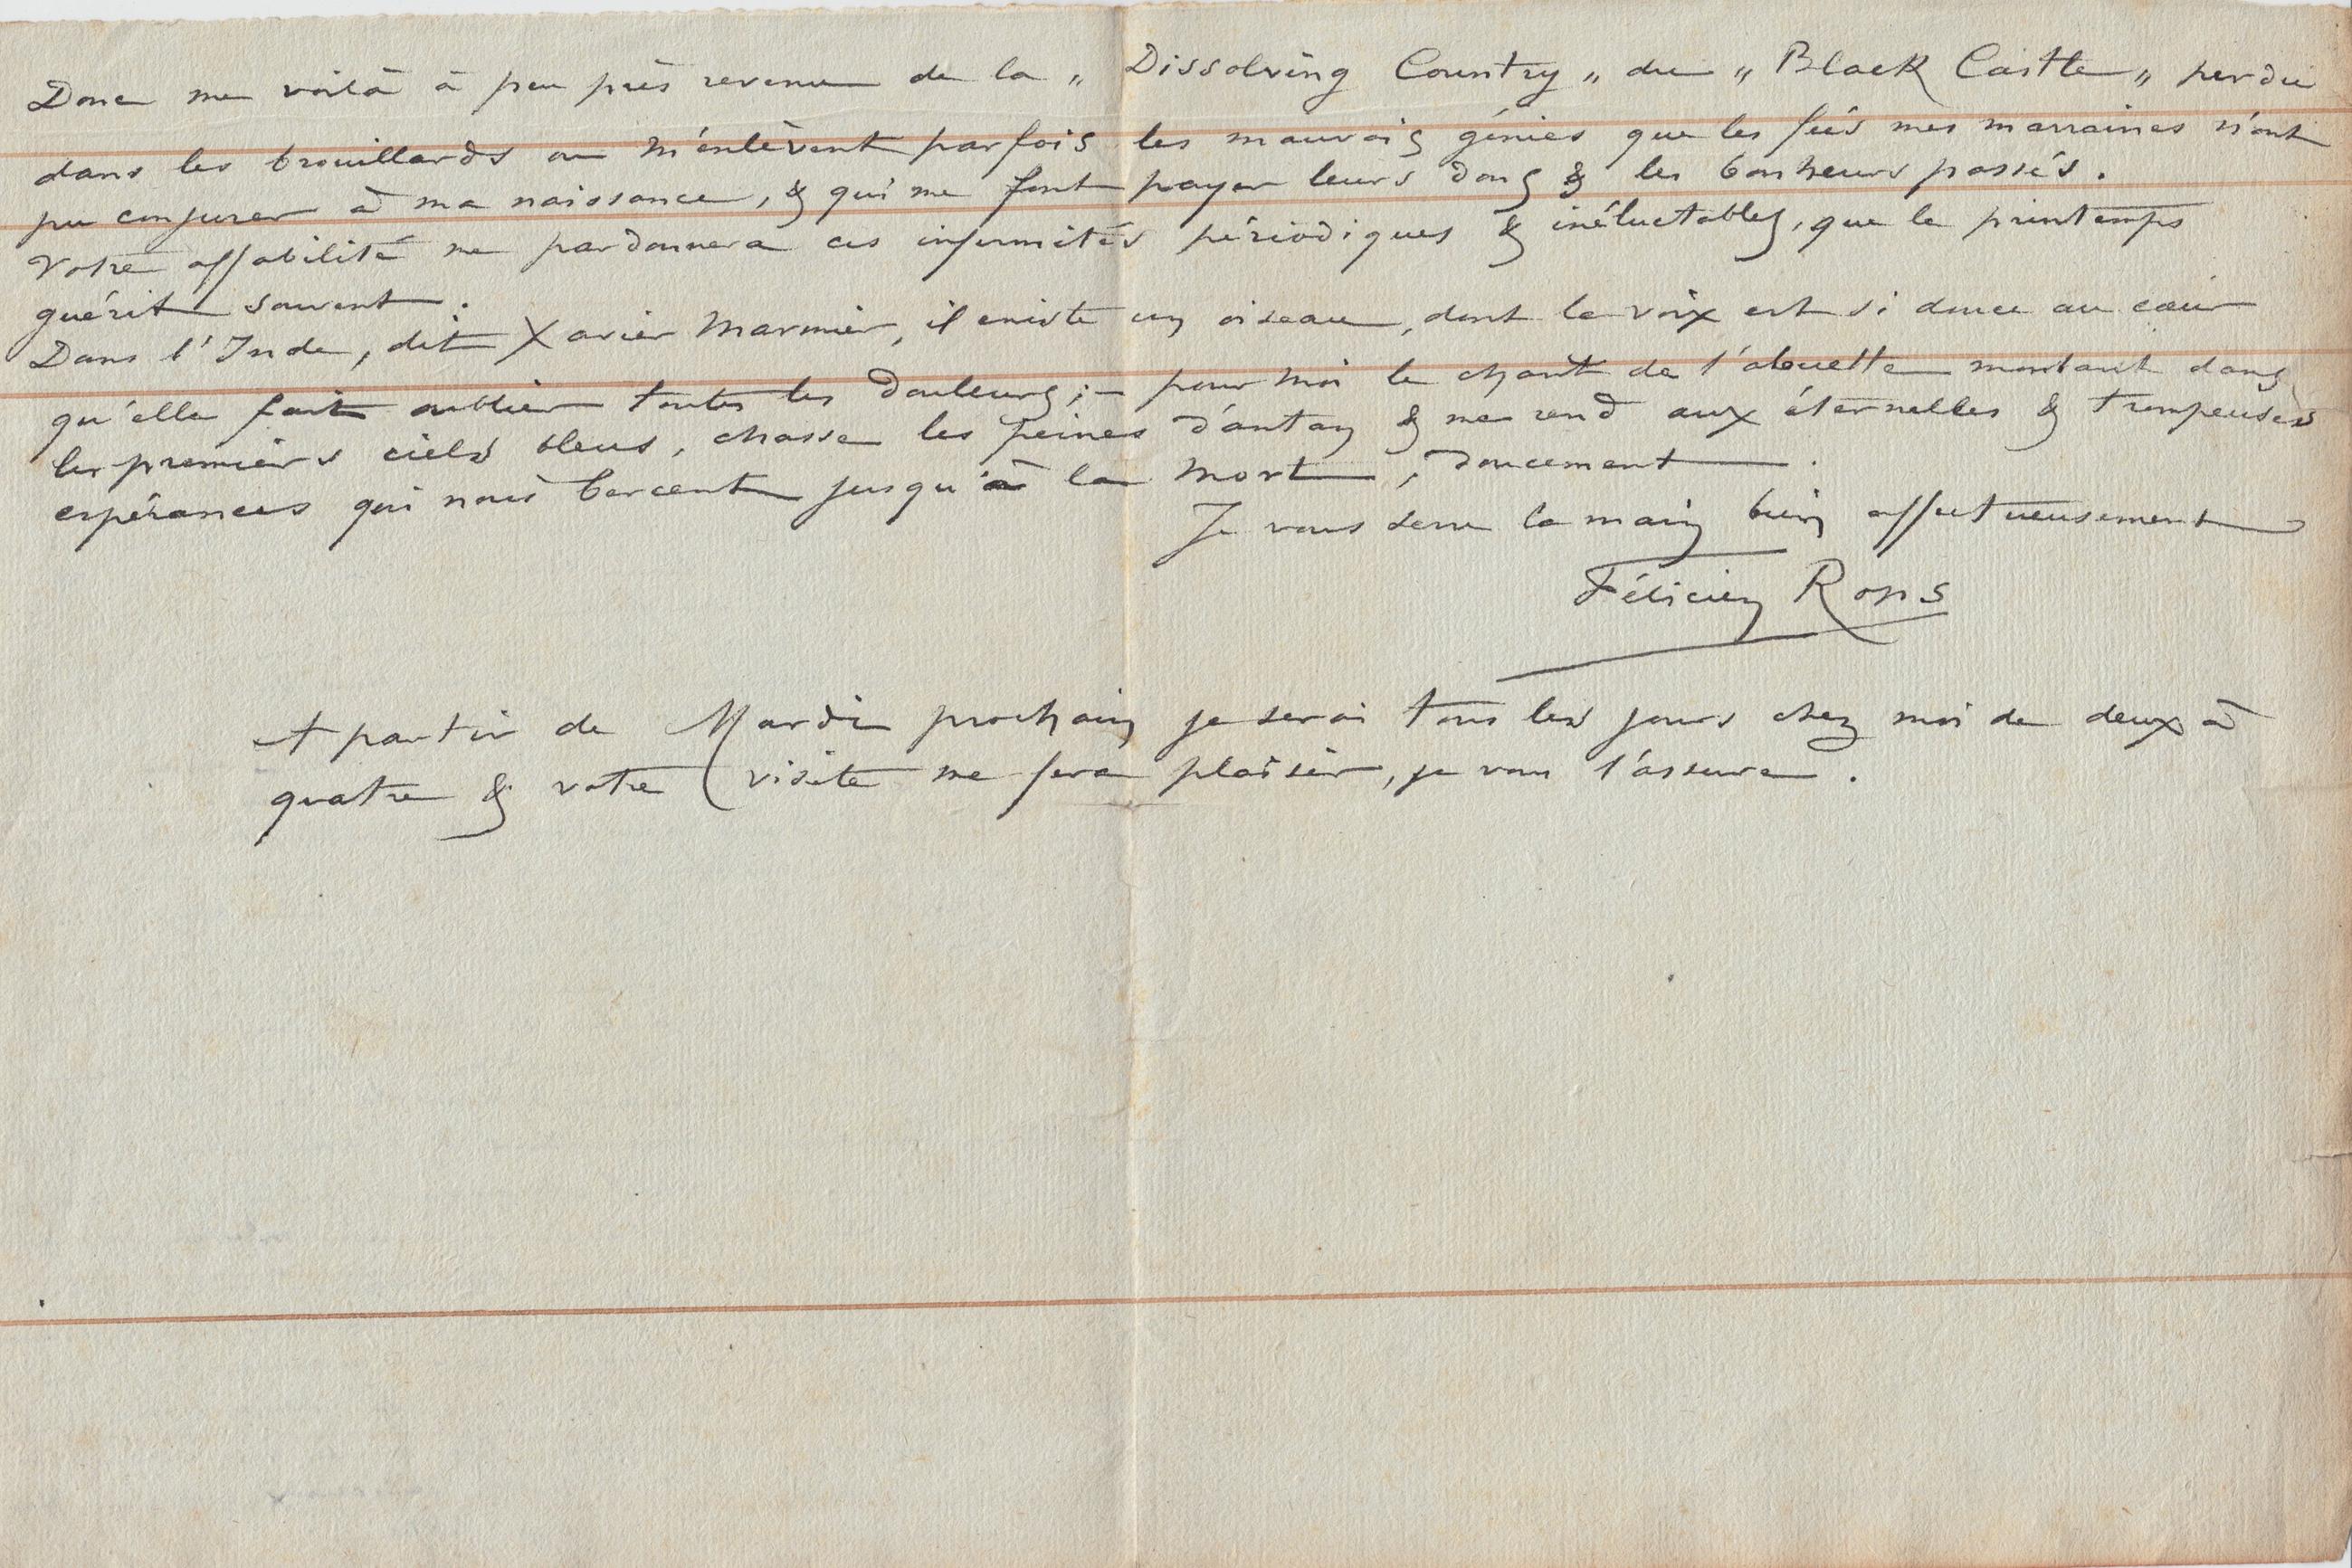 Donc me voilà à peu près revenu de la „ Dissolving Country „ du „ Black Castle „ perdu
dans les brouillards ou m'enlèvent parfois les mauvais génies que les fées mes marraines n'ont
pu conjurer à ma naissance, & qui me font payer leurs dons & les bonheurs passés.
Votre affabilité me pardonnera ces infirmités périodiques & inéluctables, que le printemps
guérit souvent.
Dans l'Inde, dit Xavier Marmier, il existe un oiseau, dont la voix est si douce au cœur
qu'elle fait oublier toutes les douleurs ; – pour moi le chant de l'alouette montant dans
les premiers ciels bleus, chasse les peines d'antan & me rend aux éternelles & trompeuses
espérances qui nous bercent jusqu'à la mort, doucement.
Je vous serre la main bien affectueusement
Félicien Rops
A partir de Mardi prochain je serai tous les jours chez moi de deux à
quatre & votre visite me fera plaisir, je vous l'assure.